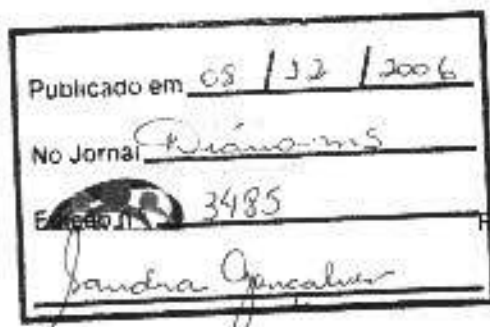 Publicado em 05 / 12 / 2006
No Jornal Diário-ms
Edição nº 3485
Sandra Gonçalves